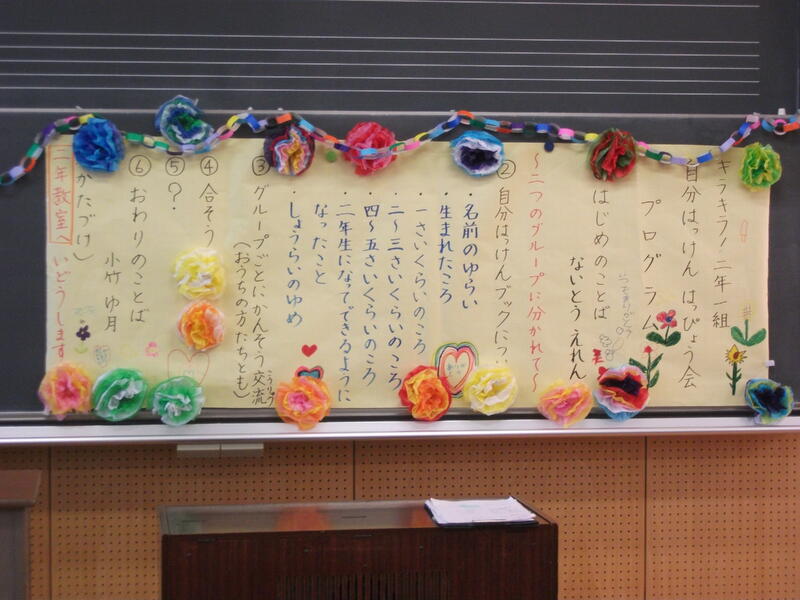 キラキラ!二年一組
自分はっけん はっぴょう会
プログラム
はじめのことば
ないとう えれん
〜二つのグループに分かれて〜
② 自分はっけんブックにつ
・名前のゆらい
・生まれたころ
・一さいくらいのころ
・二〜三さいくらいのころ
・四〜五さいくらいのころ
・二年生になってできるように
なったこと
・しょうらいのゆめ
③ グループごとにかんそう交流
こうりゅう
(おうちの方たちとも)
④ 合そう
⑤ ?
⑥ おわりのことば
小竹 ゆ月
かたづけ)
二年教室へ いどうします